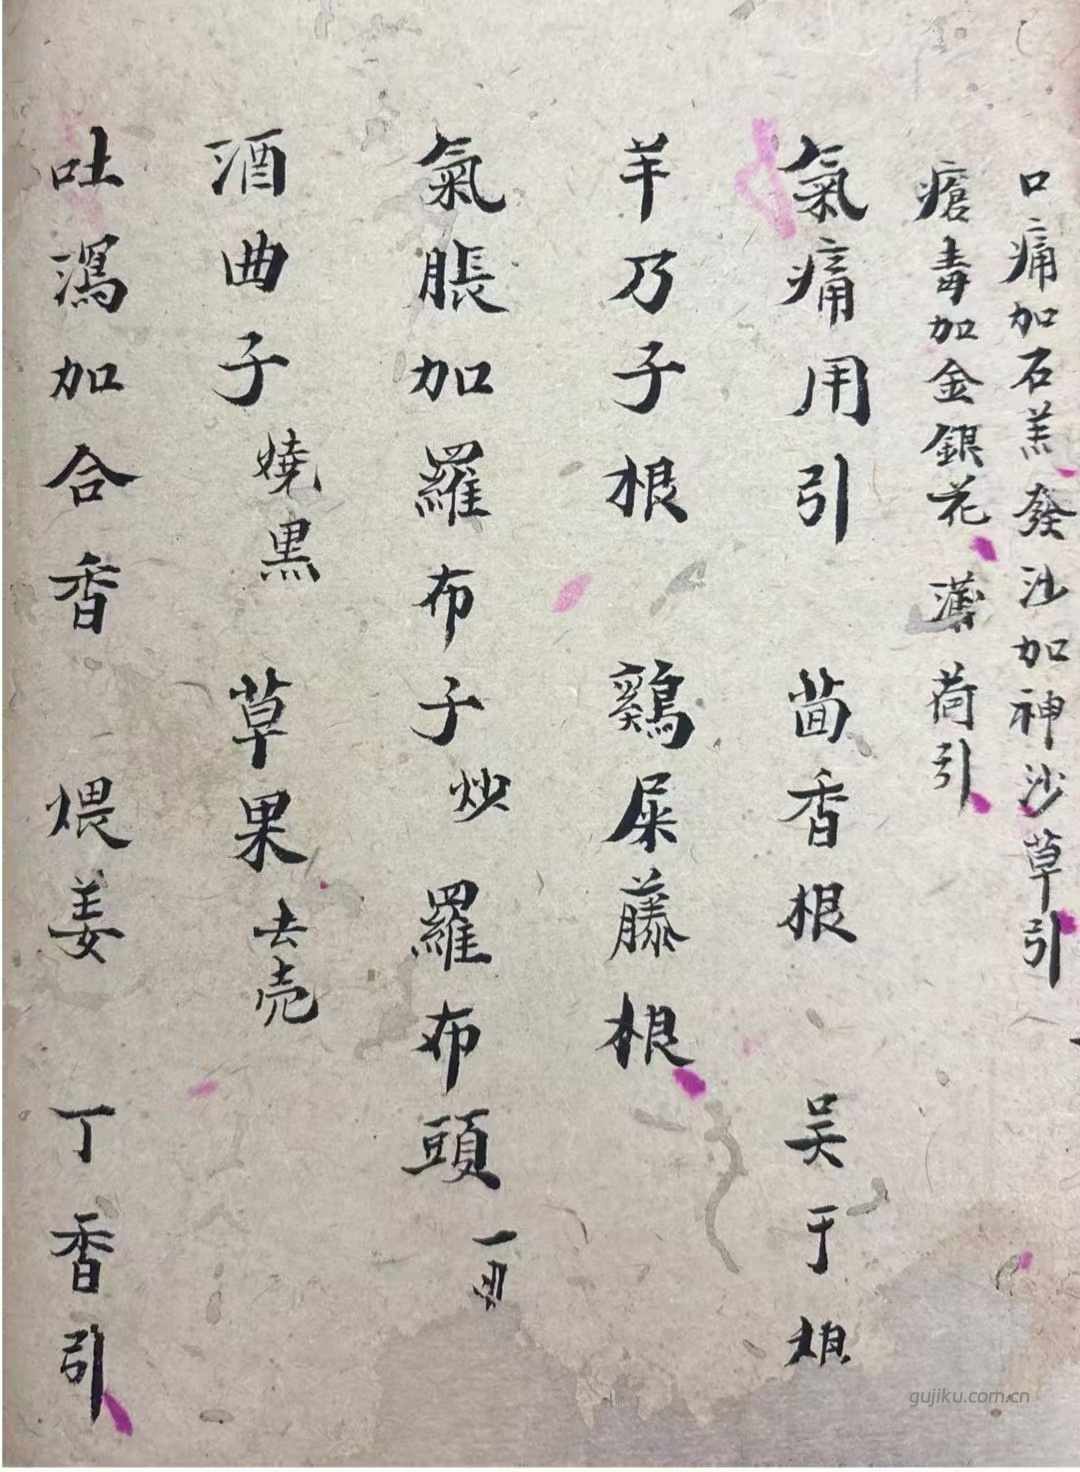 口痛加石羔發沙加神沙草引
瘡毒加金銀花 薄荷引
氣痛用引 茴香根 吴于根
羊乃子根 鷄屎藤根
氣脹加羅布子炒 羅布頭一
酒曲子燒黒 草果去壳
吐瀉加合香 煨姜 丁香引
gujiku.com.cn